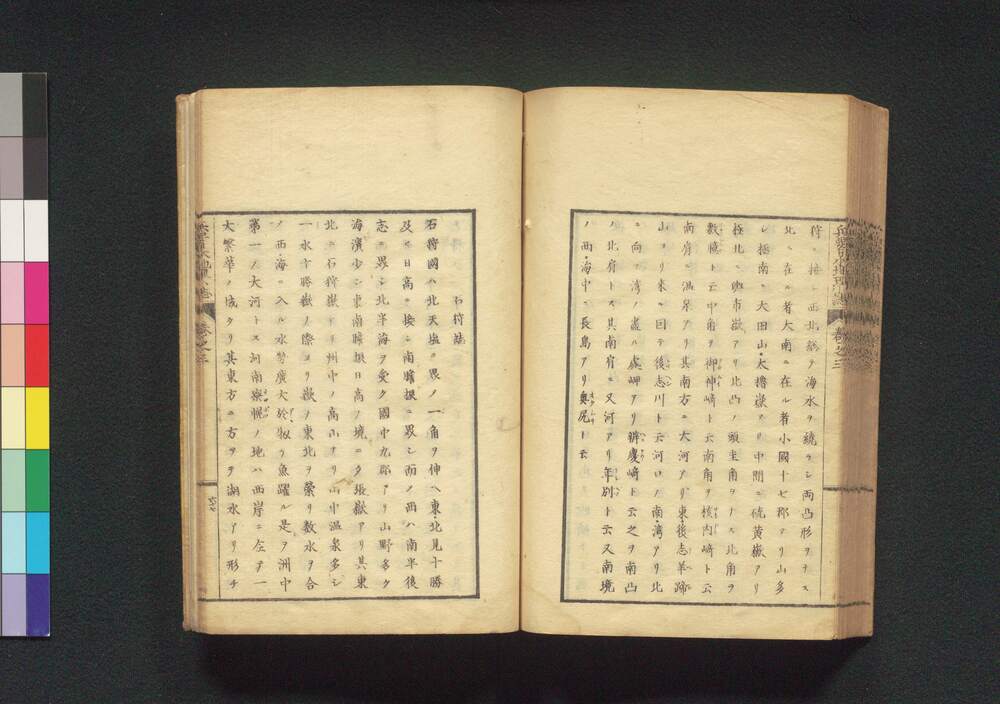 狩ニ接シ西北緣ヲ海水ヲ繞ラシ両凸形ヲナス
北ニ在ル者大南ニ在ル者小國十七郡アリ山多
シ極南ニ大田山太櫓嶽アリ中間ニ硫黄嶽アリ
極北ニ與市嶽アリ此凸ノ頭圭角ヲナス北角ヲ
數億ト云中角ヲ御神崎ト云南角ヲ核内崎ト云
南肩ニ温泉アリ其南方ニ大河アリ東後志羊蹄
山ヨリ来ニ因テ後志川ト云河口ノ南湾アリ北
ニ向フ湾ノ盡ル處岬アリ辨慶崎ト云之ヲ南凸
ノ北肩トス其南肩ニ又河アリ年別ト云又南境
ノ西海中ニ長島アリ奥尻ト云
石狩誌
石狩國ハ北天塩ノ界ノ一角ヲ伸ヘ東北見十勝
及ヒ日高ニ接シ南膽振ニ界シ而ノ西ハ南半後
志ニ界シ北半海ヲ受ク國中九郡アリ山野多ク
海濱少シ東南膽振日高ノ境ニタ張嶽アリ其東
北ニ石狩嶽アリ州中ノ高山ナリ山中温泉多シ
一水十勝嶽ノ際ヨリ嶽ノ東北ヲ縈リ数水ヲ合
ノ西海ニ入ル水勢廣大於牣ク魚躍ル是ヲ洲中
第一ノ大河トス河南察幌ノ地ハ西岸ニ在テ一
大繁華ノ城タリ其東方ニ方ヲテ湖水アリ形チ